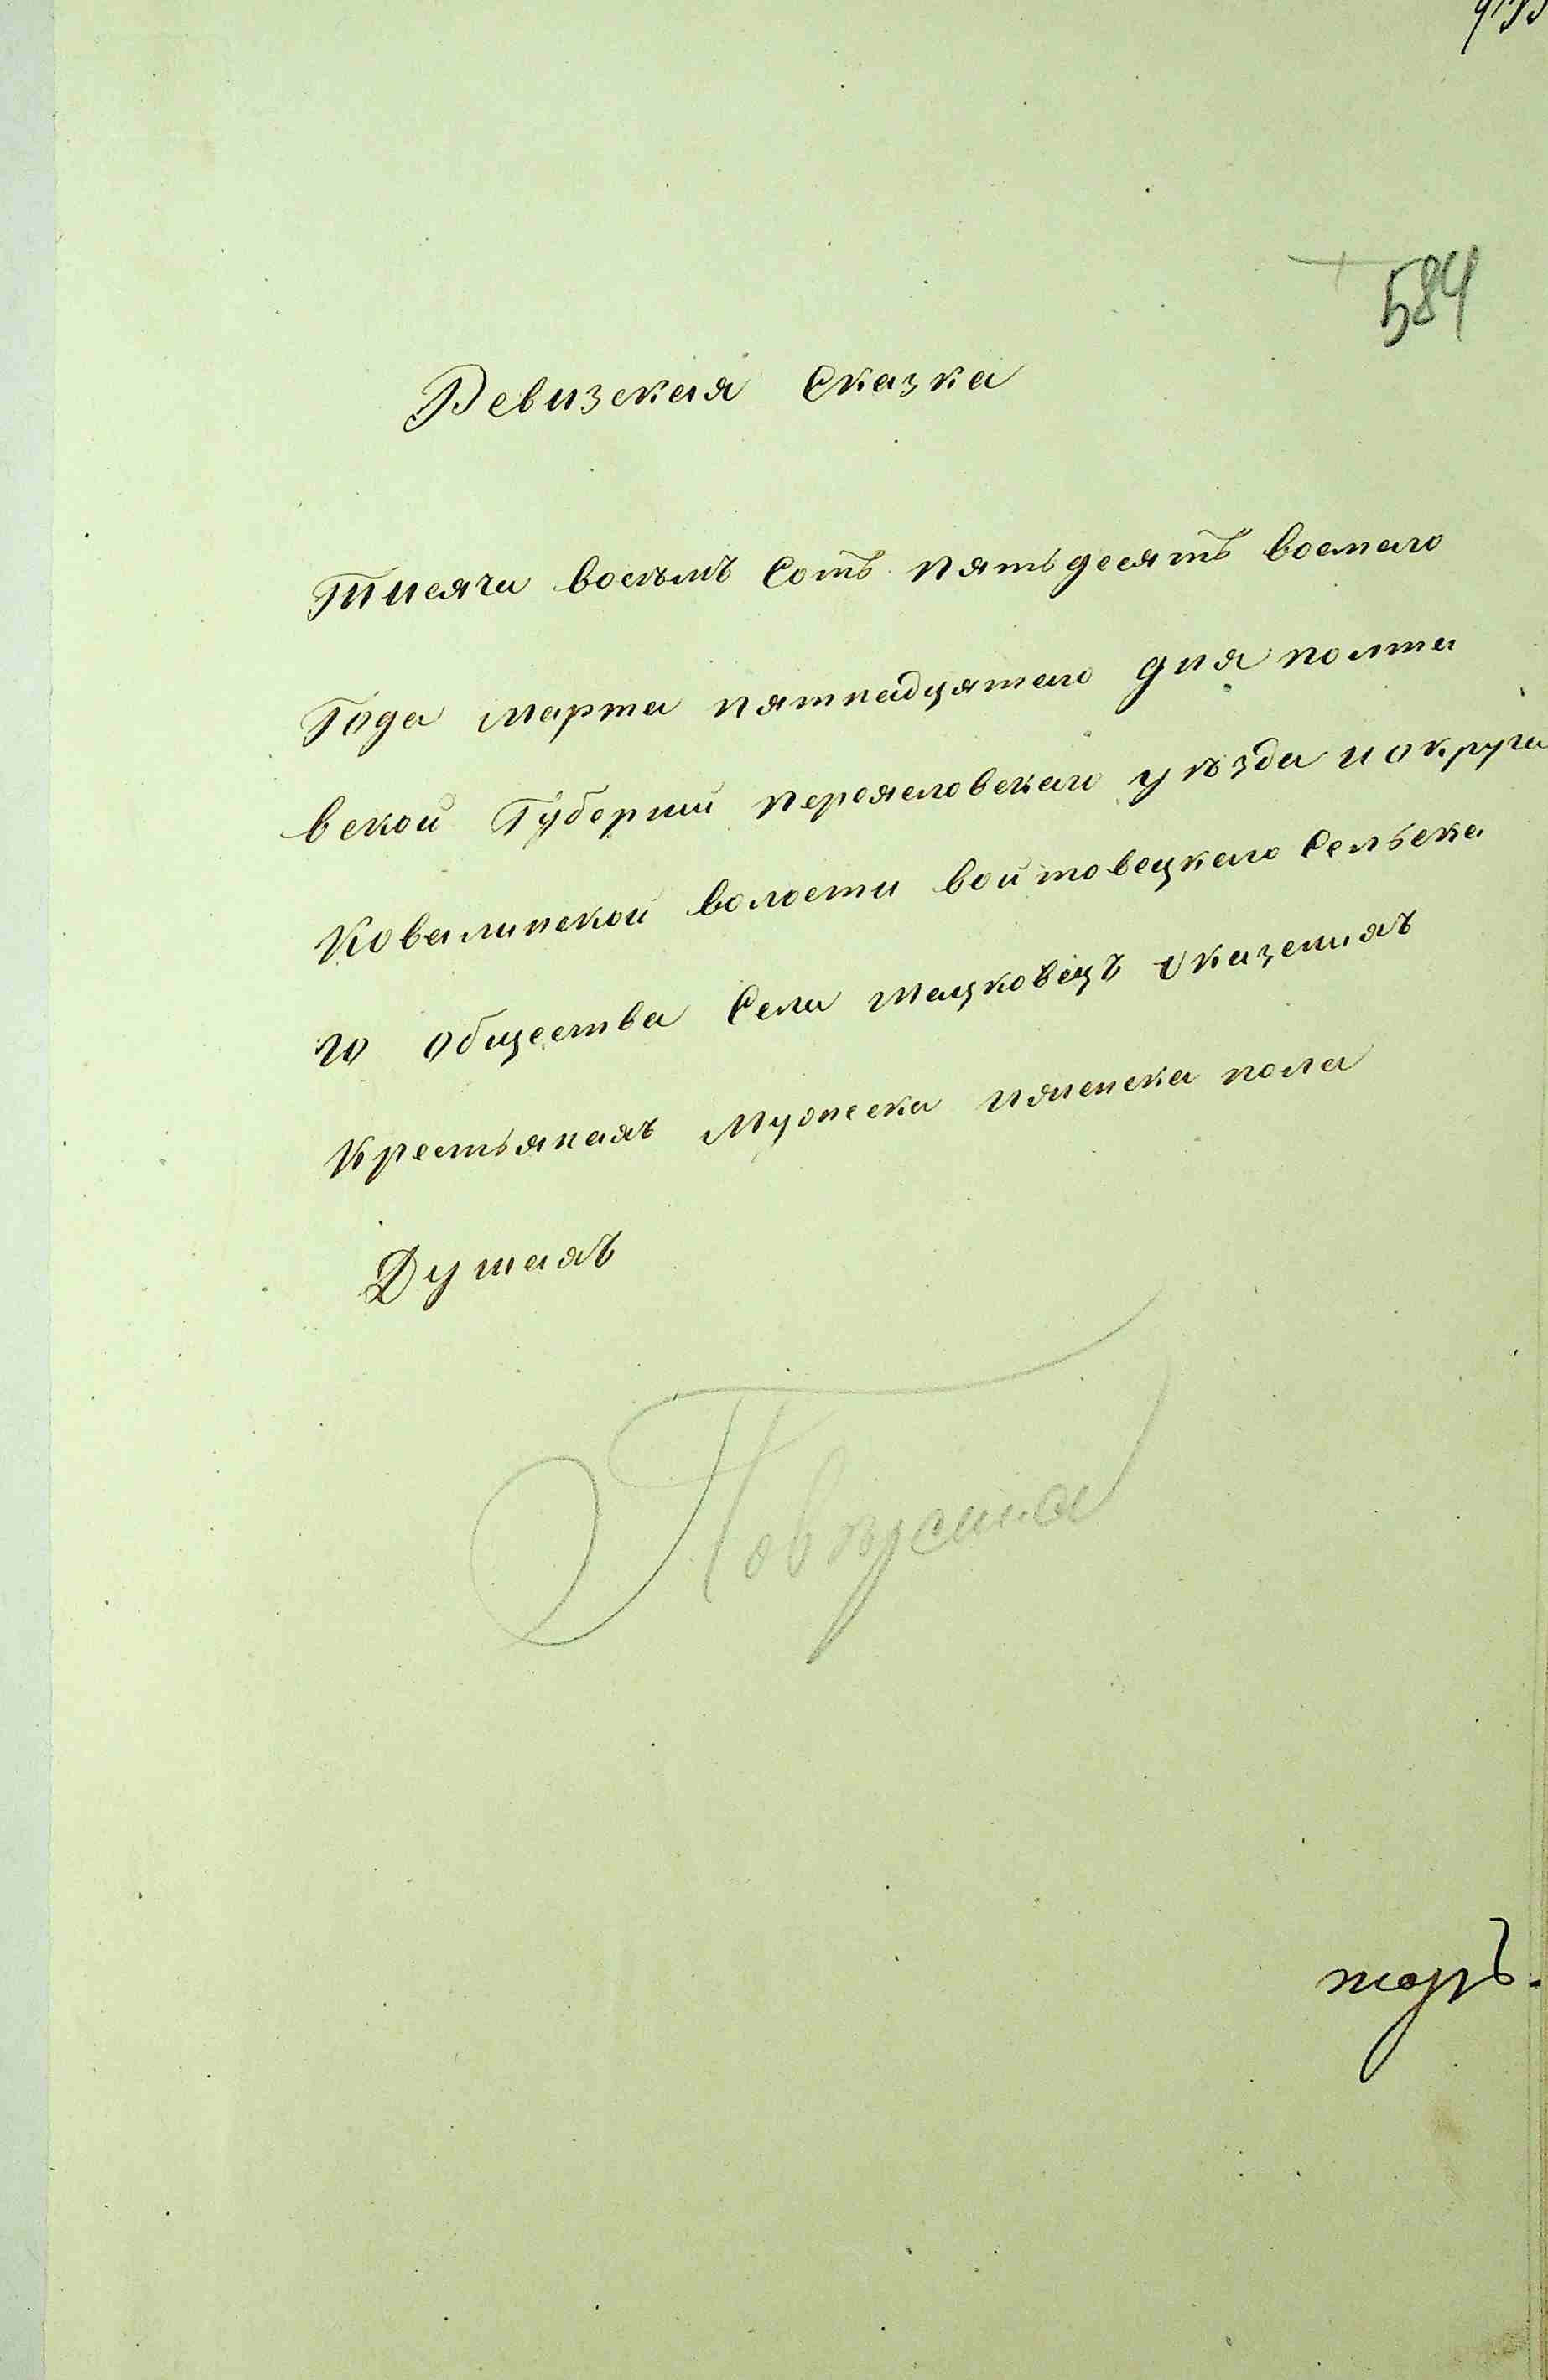 584
Ревизская Сказка
Тисяча восемъ Сотъ пятьдесятъ восмаго
Года марта пятнадцятаго дня полта
вской Губернии переяславскаго уѣзда и округа
Ковалинской волости войтовецкаго Сельска
го общества Села мацковецъ Оказенихъ
Крестьянахъ Мужеска иженска пола
Душахъ